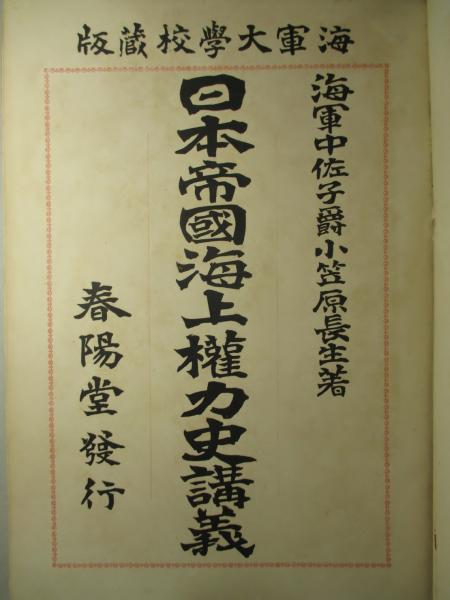 海軍大學校藏版
海軍中佐子爵小笠原長生著
日本帝國海上權力史講義
春陽堂發行